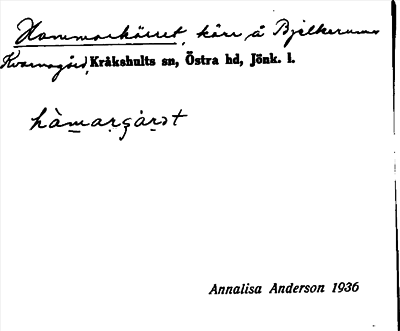 Hammarkärret, kärr å Bjälkerums
Kvarnagård, Kråkshults sn, Östra hd, Jönk. l.
hàmarçàrət
Annalisa Anderson 1936